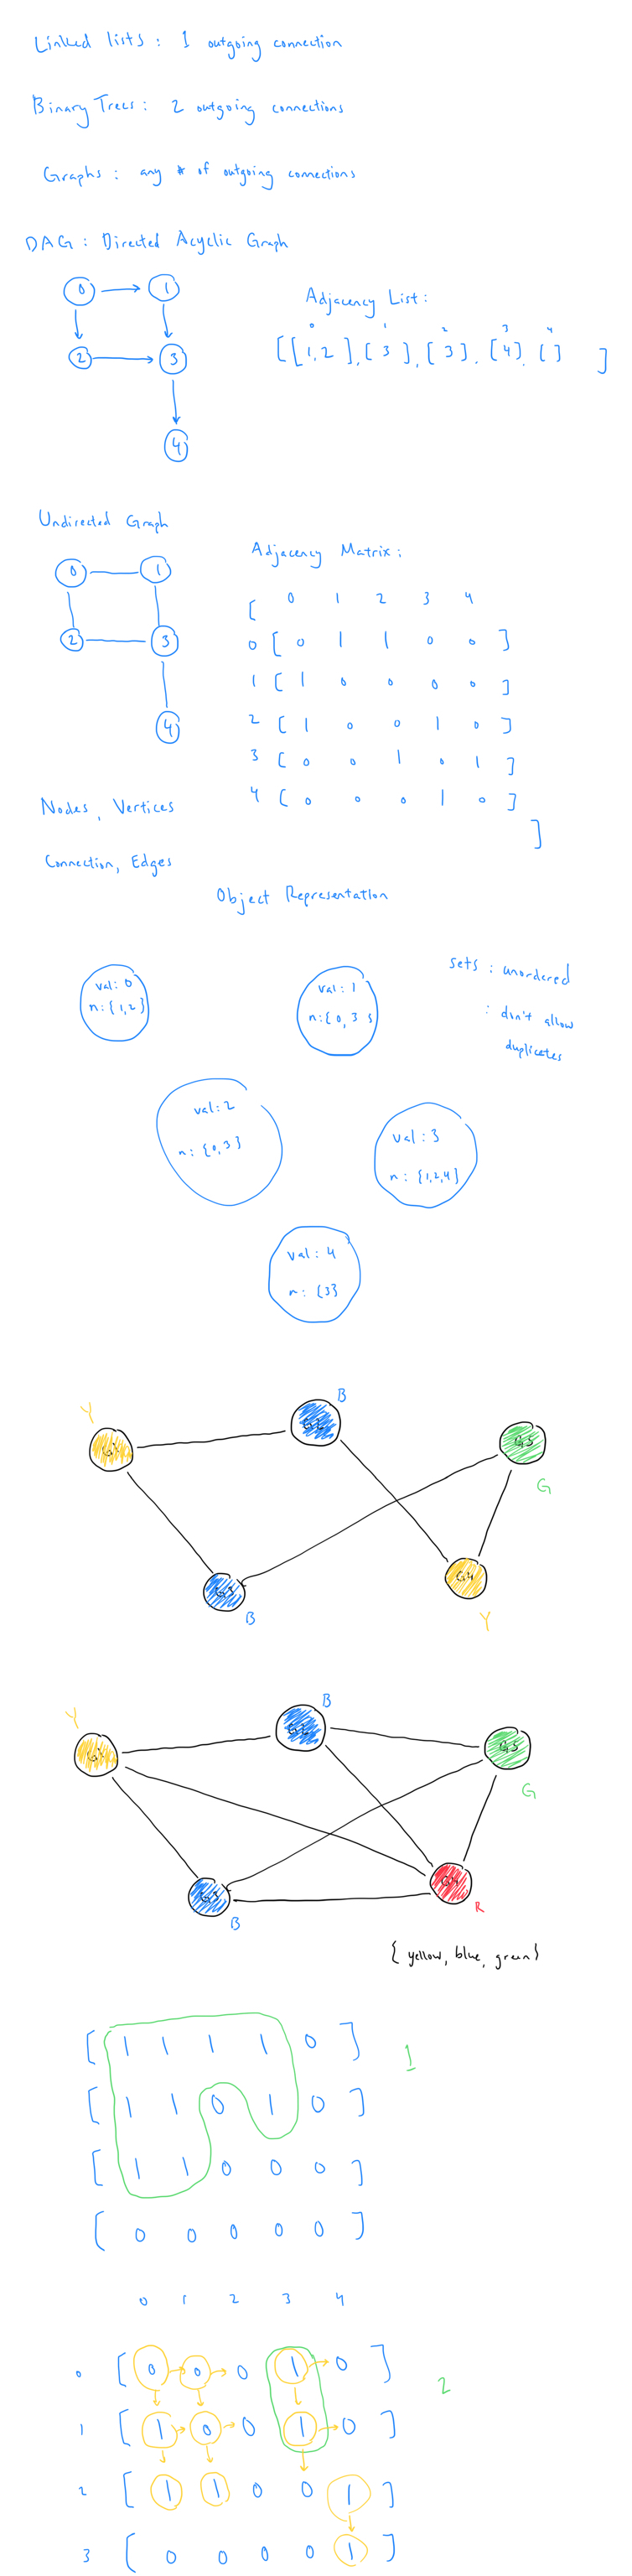 Linked lists: 1 outgoing connection
Binary Trees: 2 outgoing connections
Graphs: any # of outgoing connections
DAG: Directed Acyclic Graph
0 1
2 3
4
Adjacency List:
0 1 2 3 4
[[1,2],[3],[3],[4],[] ]
Undirected Graph
0 1
2 3
4
Adjacency Matrix:
[ 0 1 2 3 4
0 [ 0 1 1 0 0 ]
1 [ 1 0 0 0 0 ]
2 [ 1 0 0 1 0 ]
3 [ 0 0 1 0 1 ]
4 [ 0 0 0 1 0 ]
]
Nodes, Vertices
Connection, Edges
Object Representation
val: 0
n:{1,2}
val: 1
n:{0,3}
sets: unordered
: don't allow
duplicates
val:2
n: {0,3}
val: 3
n: {1,2,4}
val: 4
n: {3}
Y
B
G2
G5
G
G3
B
G4
Y
Y
B
G2
G5
G
G3
B
R
{yellow, blue, green}
[ 1 1 1 1 0 ] 1
[ 1 1 0 1 0 ]
[ 1 1 0 0 0 ]
[ 0 0 0 0 0 ]
0 1 2 3 4
0 [ 0 0 0 1 0 ] 2
1 [ 1 0 0 1 0 ]
2 [ 1 1 0 0 1 ]
3 [ 0 0 0 0 1 ]